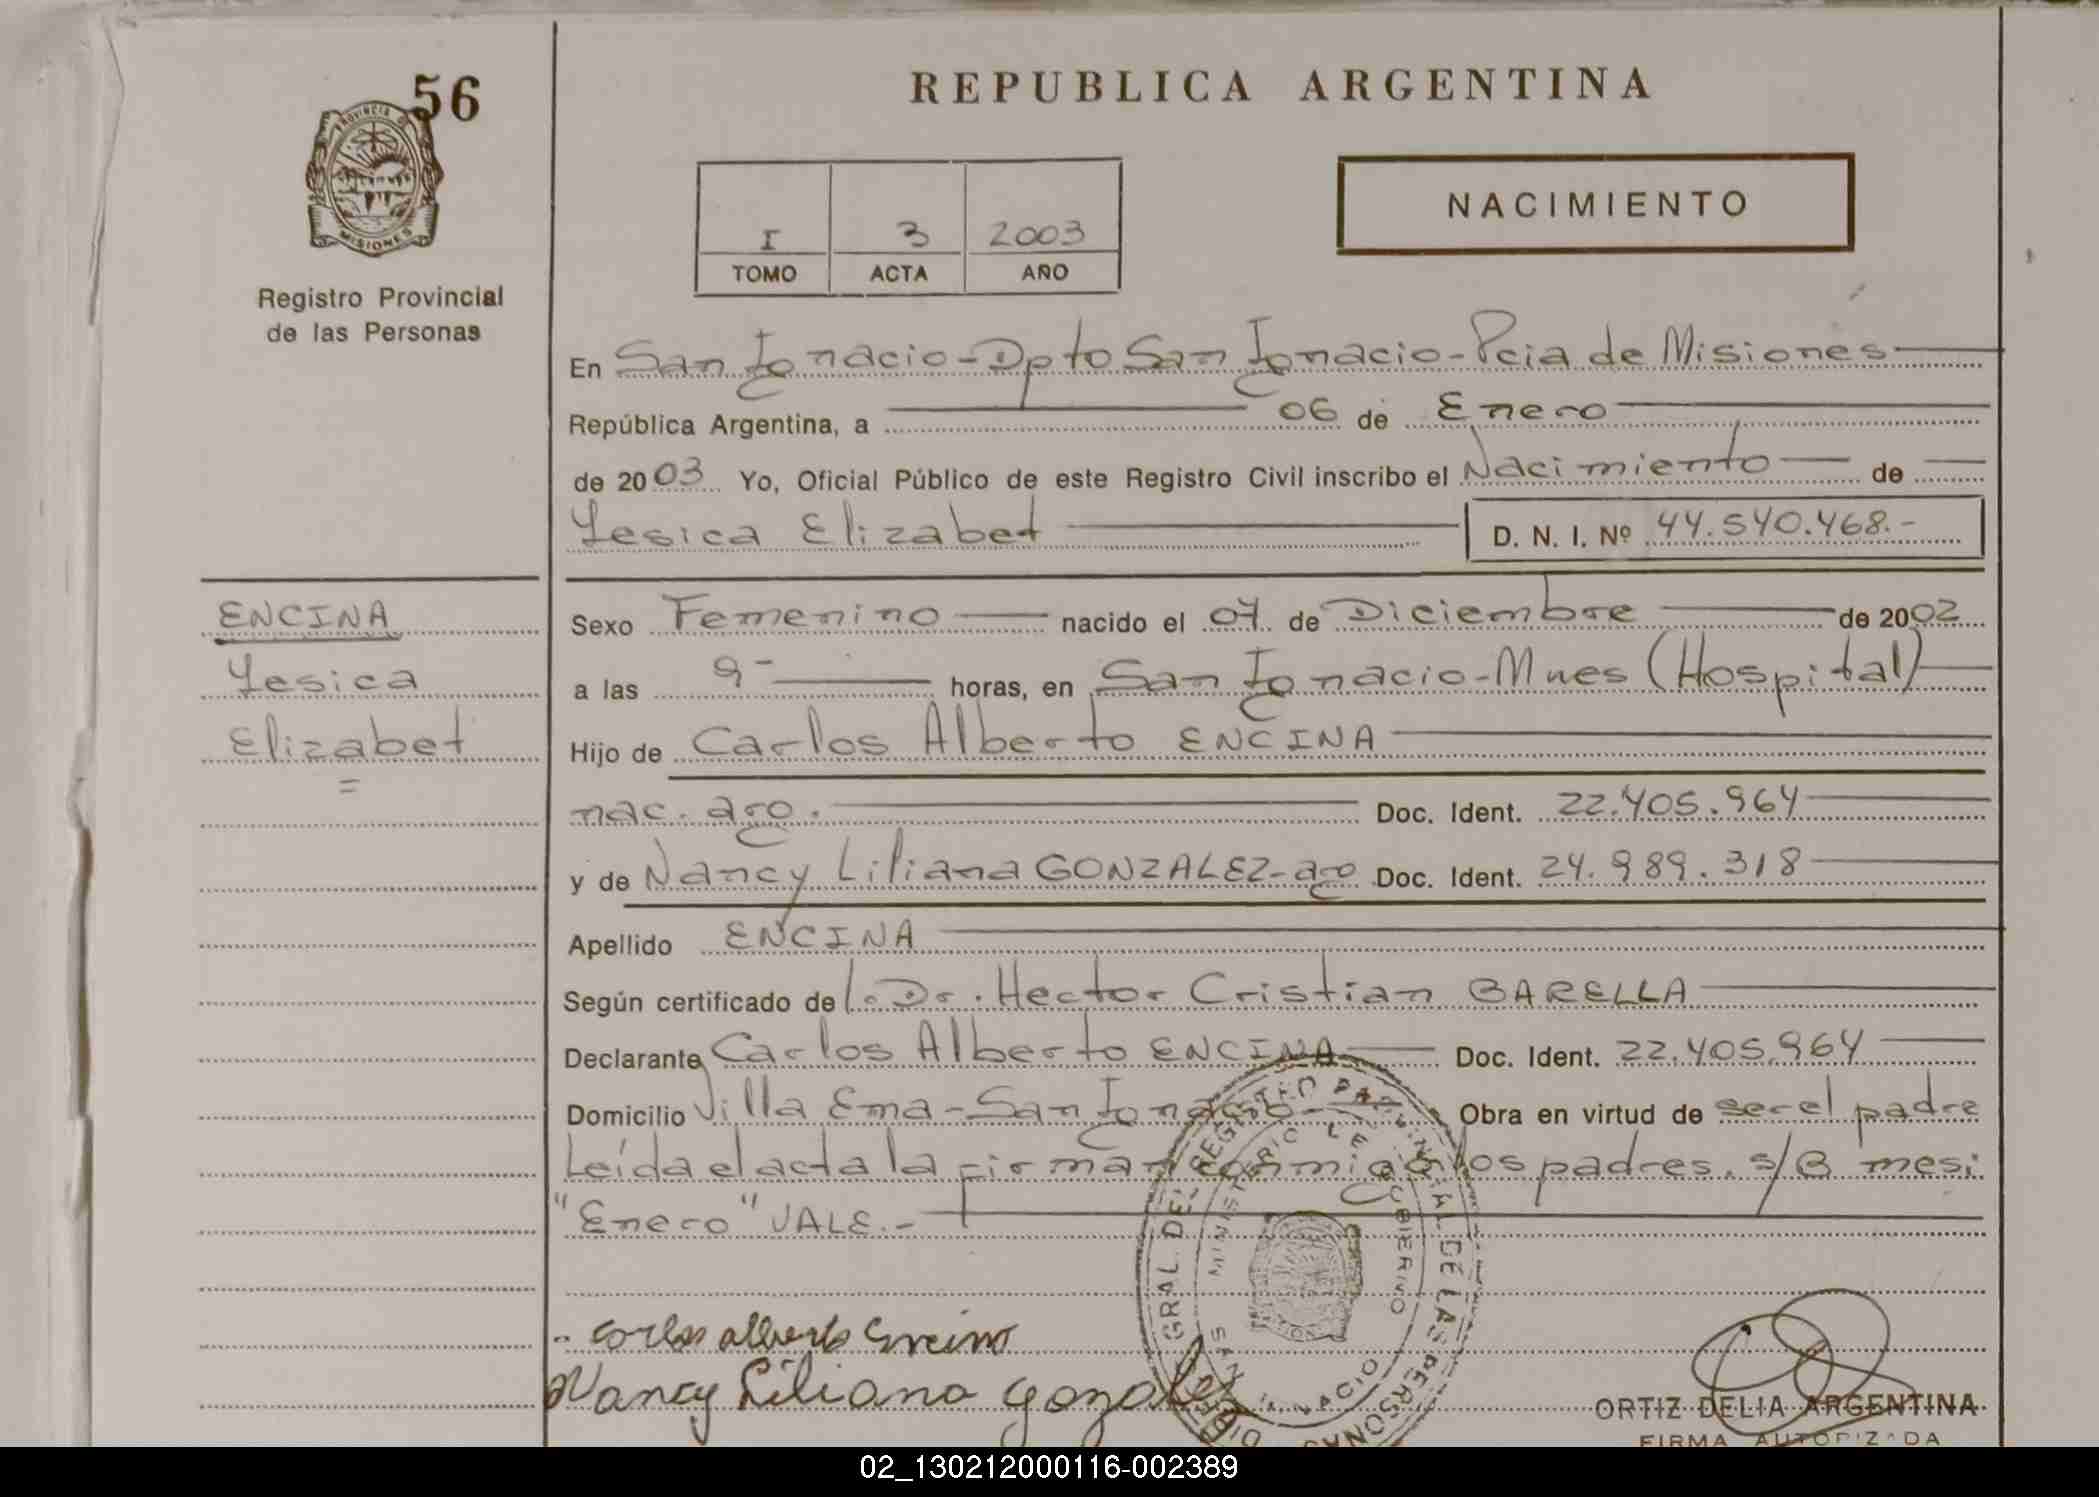 56
REPUBLICA ARGENTINA
PROVINCIA DE
MISIONES
NACIMIENTO
I 3 2003
TOMO ACTA AÑO
Registro Provincial
de las Personas
En San Ignacio-Dpto San Ignacio-Pcia de Misiones
República Argentina, a 06 de Enero
de 2003 Yo, Oficial Público de este Registro Civil inscribo el Nacimiento de
Yesica Elizabet D. N. I. Nº 44.540.468.-
ENCINA
Yesica
Elizabet
=
Sexo Femenino nacido el 07 de Diciembre de 2002
a las 9- horas, en San Ignacio-Mnes (Hospital)
Hijo de Carlos Alberto ENCINA
nac. arg. Doc. Ident. 22.405.964
y de Nancy Liliana GONZALEZ-arg Doc. Ident. 24.989.318
Apellido ENCINA
Según certificado del Dr. Hector Cristian BARELLA
Declarante Carlos Alberto ENCINA Doc. Ident. 22.405.964
Domicilio Villa Ema-San Ignacio Obra en virtud de ser el padre
Leída el acta la firman conmigo los padres. s/B mes:
"Enero" VALE.-
Carlos alberto Encina
Nancy Liliana Gonzalez
GRAL DEL REGISTRO PROVINCIAL DE LAS PERSONAS
MINISTERIO DE GOBIERNO
SAN IGNACIO
ORTIZ DELIA ARGENTINA
FIRMA AUTORIZADA
02_130212000116-002389